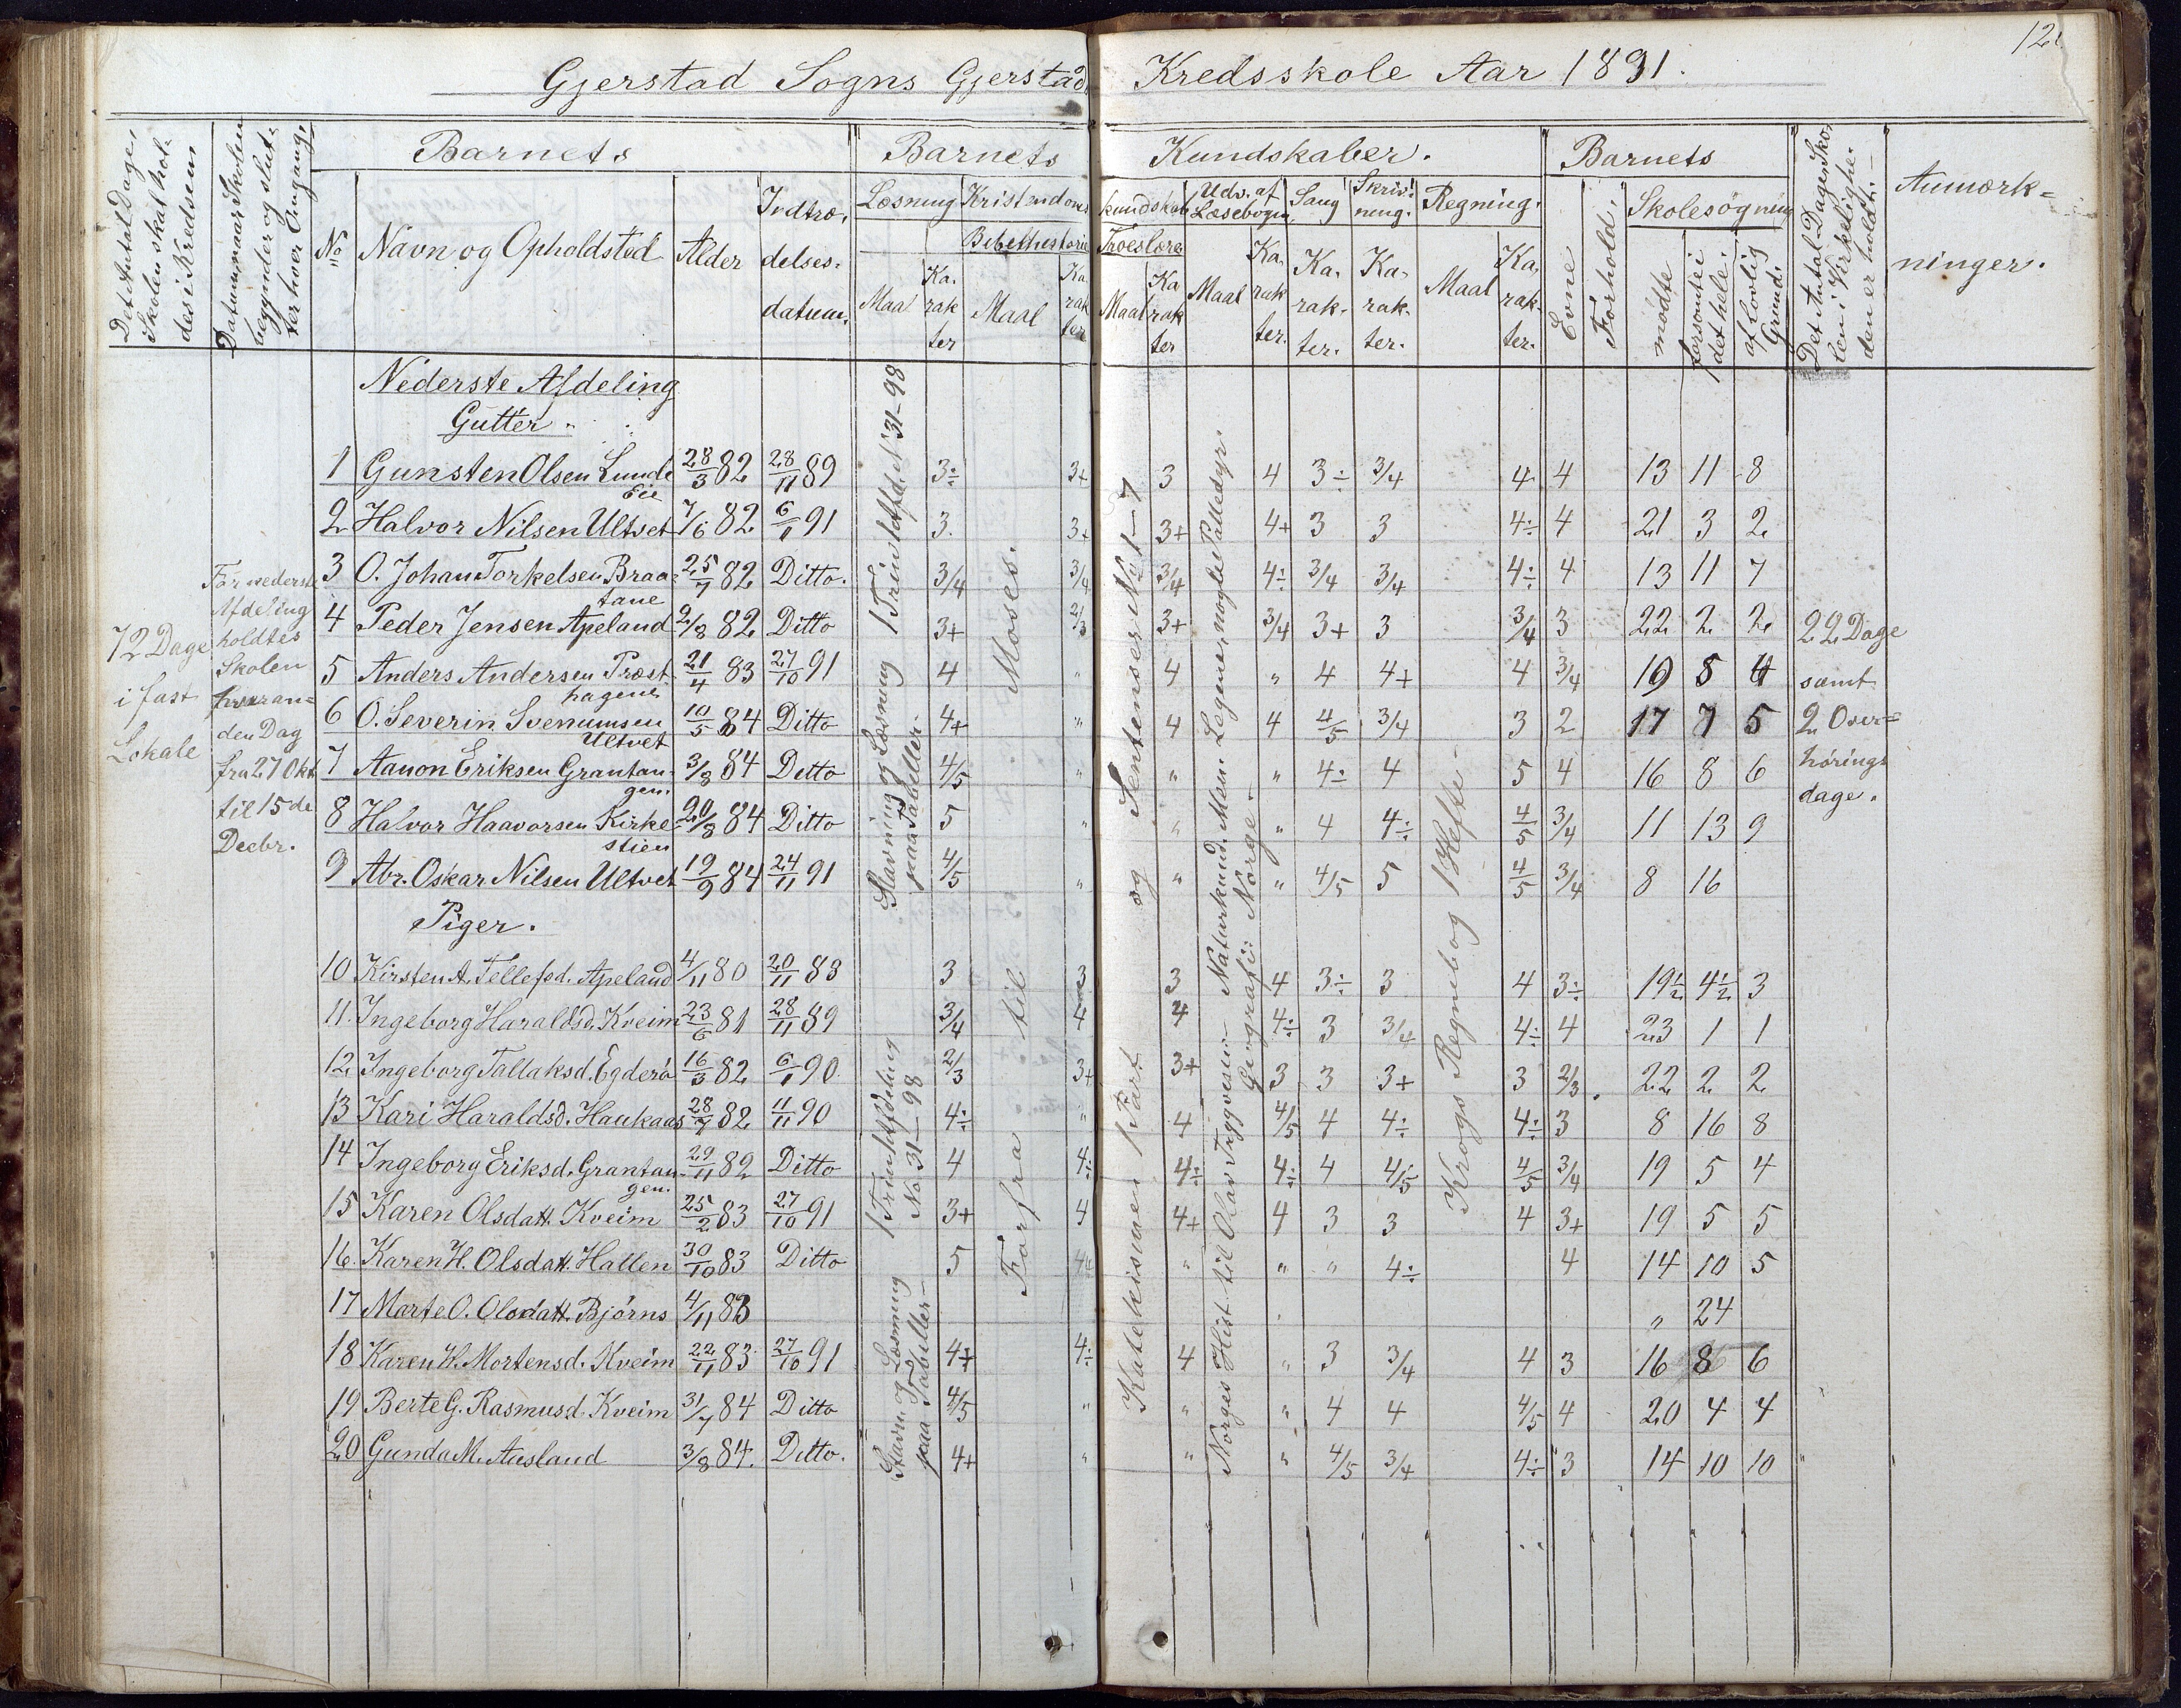 12
Gjerstad Sogns Gjerstad Kredsskole Aar 1891.
Det Antal Dage, Skolen skal holdes i Kredsen
Datum, naar Skolen begynder og slutter hver Omgang.
Barnets
Barnets Kundskaber.
Barnets
Det Antal Dage Skolen i Virkeligheden er holdt.
Anmærkninger.
No
Navn og Opholdsted
Alder
Indtrædelsesdatum.
Læsning
Kristendomskundskab
Udv. af Læsebogen
Sang
Skrivning.
Regning.
Evne
Forhold.
Skolesøgning
Bibelhistorie
Troeslære
Maal
Karakter
Maal
Karakter
Maal
Karakter
Maal
Karakter.
Karakter.
Karakter.
Maal
Karakter.
mødte
forsømte i det hele.
af lovlig Grund.
72 Dage i fast Lokale
For nederste Afdeling holdtes Skolen hveranden Dag fra 27 Okt til 15de Decbr.
Nederste Afdeling
Gutter
1 Gunsten Olsen Lunde Eie 28/3 82 28/11 89 3÷ 3+ 3 4 3÷ 3/4 4 4 13 11 8
2 Halvor Nilsen Ultvet 7/6 82 6/1 91 3 3+ 3+ 4+ 3 3 4÷ 4 21 3 2
3 O. Johan Torkelsen Braatane 25/7 82 Ditto. 3/4 3/4 3/4 4÷ 3/4 3/4 4÷ 4 13 11 7
4 Peder Jensen Apeland 2/8 82 Ditto 3+ 2/3 3+ 3/4 3+ 3 3/4 3 22 2 2
5 Anders Andersen Præsthagene 21/4 83 27/10 91 4 " 4 " 4 4+ 4 3/4 19 5 4
6 O. Severin Svenumsen Ultvet 10/5 84 Ditto 4+ " 4 4 4/5 3/4 3 2 17 7 5
7 Aanon Eriksen Grantangen. 3/8 84 Ditto 4/5 " " " 4÷ 4 5 4 16 8 6
8 Halvor Haavorsen Kirkestien 20/8 84 Ditto 5 " " " 4 4÷ 4/5 3/4 11 13 9
9 Abr. Oskar Nilsen Ultvet 19/9 84 24/11 91 4/5 " " " 4/5 5 4/5 3/4 8 16
Piger.
10 Kirsten A. Tellefsd. Apeland 4/11 80 20/11 83 3 3 3 4 3÷ 3 4 3÷ 19½ 4½ 3
11. Ingeborg Haraldsd. Kveim 23/6 81 28/11 89 3/4 4 4 4÷ 3 3/4 4÷ 4 23 1 1
12 Ingeborg Tallaksd. Egderø 16/3 82 6/1 90 2/3 3+ 3+ 3 3 3+ 3 2/3 22 2 2
13 Kari Haraldsd. Haukaas 28/7 82 11/11 90 4÷ " 4 4/5 4 4÷ 4÷ 3 8 16 8
14 Ingeborg Eriksd. Grantangen. 29/11 82 Ditto 4 4÷ 4÷ 4÷ 4 4/5 4/5 3/4 19 5 4
15 Karen Olsdatt. Kveim 25/2 83 27/10 91 3+ 4 4+ 4 3 3 4 3+ 19 5 5
16. Karen H. Olsdatt. Hallen 30/10 83 Ditto 5 " " " 4÷ 4 14 10 5
17 Marte O. Olsdatt. Bjørns 4/11 83 " 24
18 Karen K. Mortensd. Kveim 22/11 83 27/10 91 4+ 4÷ 4 " 3 3/4 4 3 16 8 6
19 Berte G. Rasmusd. Kveim 31/7 84 Ditto 4/5 " " " 4 4 4/5 4 20 4 4
20 Gunda M. Aasland 3/8 84. Ditto. 4+ " " " 4/5 3/4 4÷ 3 14 10 10
Stavning og Læsning 1 Trin 1 Afd. No 31-98
paa Tabeller.
Stavn. og Læsning 1 Trin 1 Afdeling
paa Tabeller No 31-98
Forfra til Moses.
Katekismen 1 Part og Sentenser No 1-7
Norges Hist. til Olav Trygvesøn - Naturkund. Men. Legeme, nogle Pattedyr.
Geografi: Norge.
Krogs Regnebog 1 Hefte
22 Dage samt 2 Overhøringsdage.